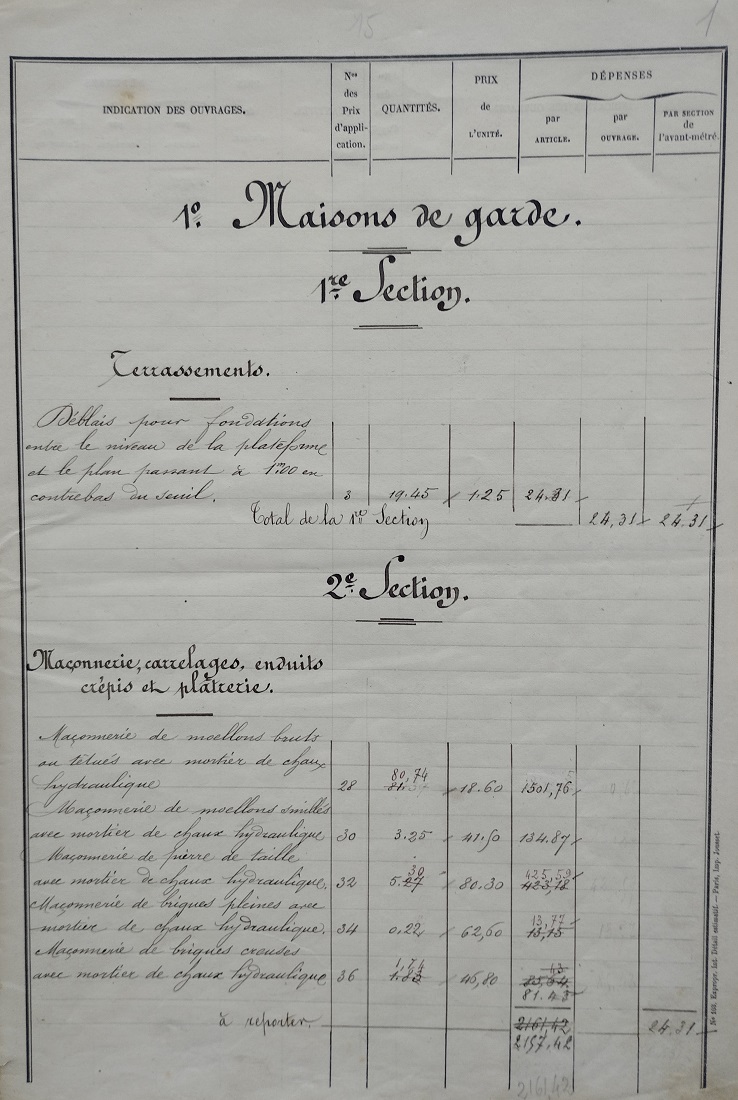 15
1
INDICATION DES OUVRAGES.
Nos des Prix d'appli-cation.
QUANTITÉS.
PRIX de L'UNITÉ.
DÉPENSES
par ARTICLE.
par OUVRAGE.
PAR SECTION de l'avant-métré.
1º. Maisons de garde.
1re Section.
Terrassements.
Déblais pour fondations
entre le niveau de la plateforme
et le plan passant à 1m00 en
contrebas du seuil. 3 19.45 1.25 24.31
Total de la 1re Section 24,31 24.31
2e Section.
Maçonnerie, carrelages, enduits
crépis et plâtrerie.
Maçonnerie de moellons bruts
ou têtués avec mortier de chaux
80,74
hydraulique 28 18.60 1501,76
Maçonnerie de moellons smillés
avec mortier de chaux hydraulique 30 3.25 41.50 134.87
Maçonnerie de pierre de taille
30 425,59
avec mortier de chaux hydraulique. 32 5.27 80.30 423,18
Maçonnerie de briques pleines avec
13,77
mortier de chaux hydraulique. 34 0.22 62,60 13,15
Maçonnerie de briques creuses
1,74
avec mortier de chaux hydraulique 36 1.83 46,80
81.43
à reporter. 2161,42 24.31
2157.42
2161,42
No 103. Expropr. Int. Détail estimatif. — Paris, Imp. Jousset.